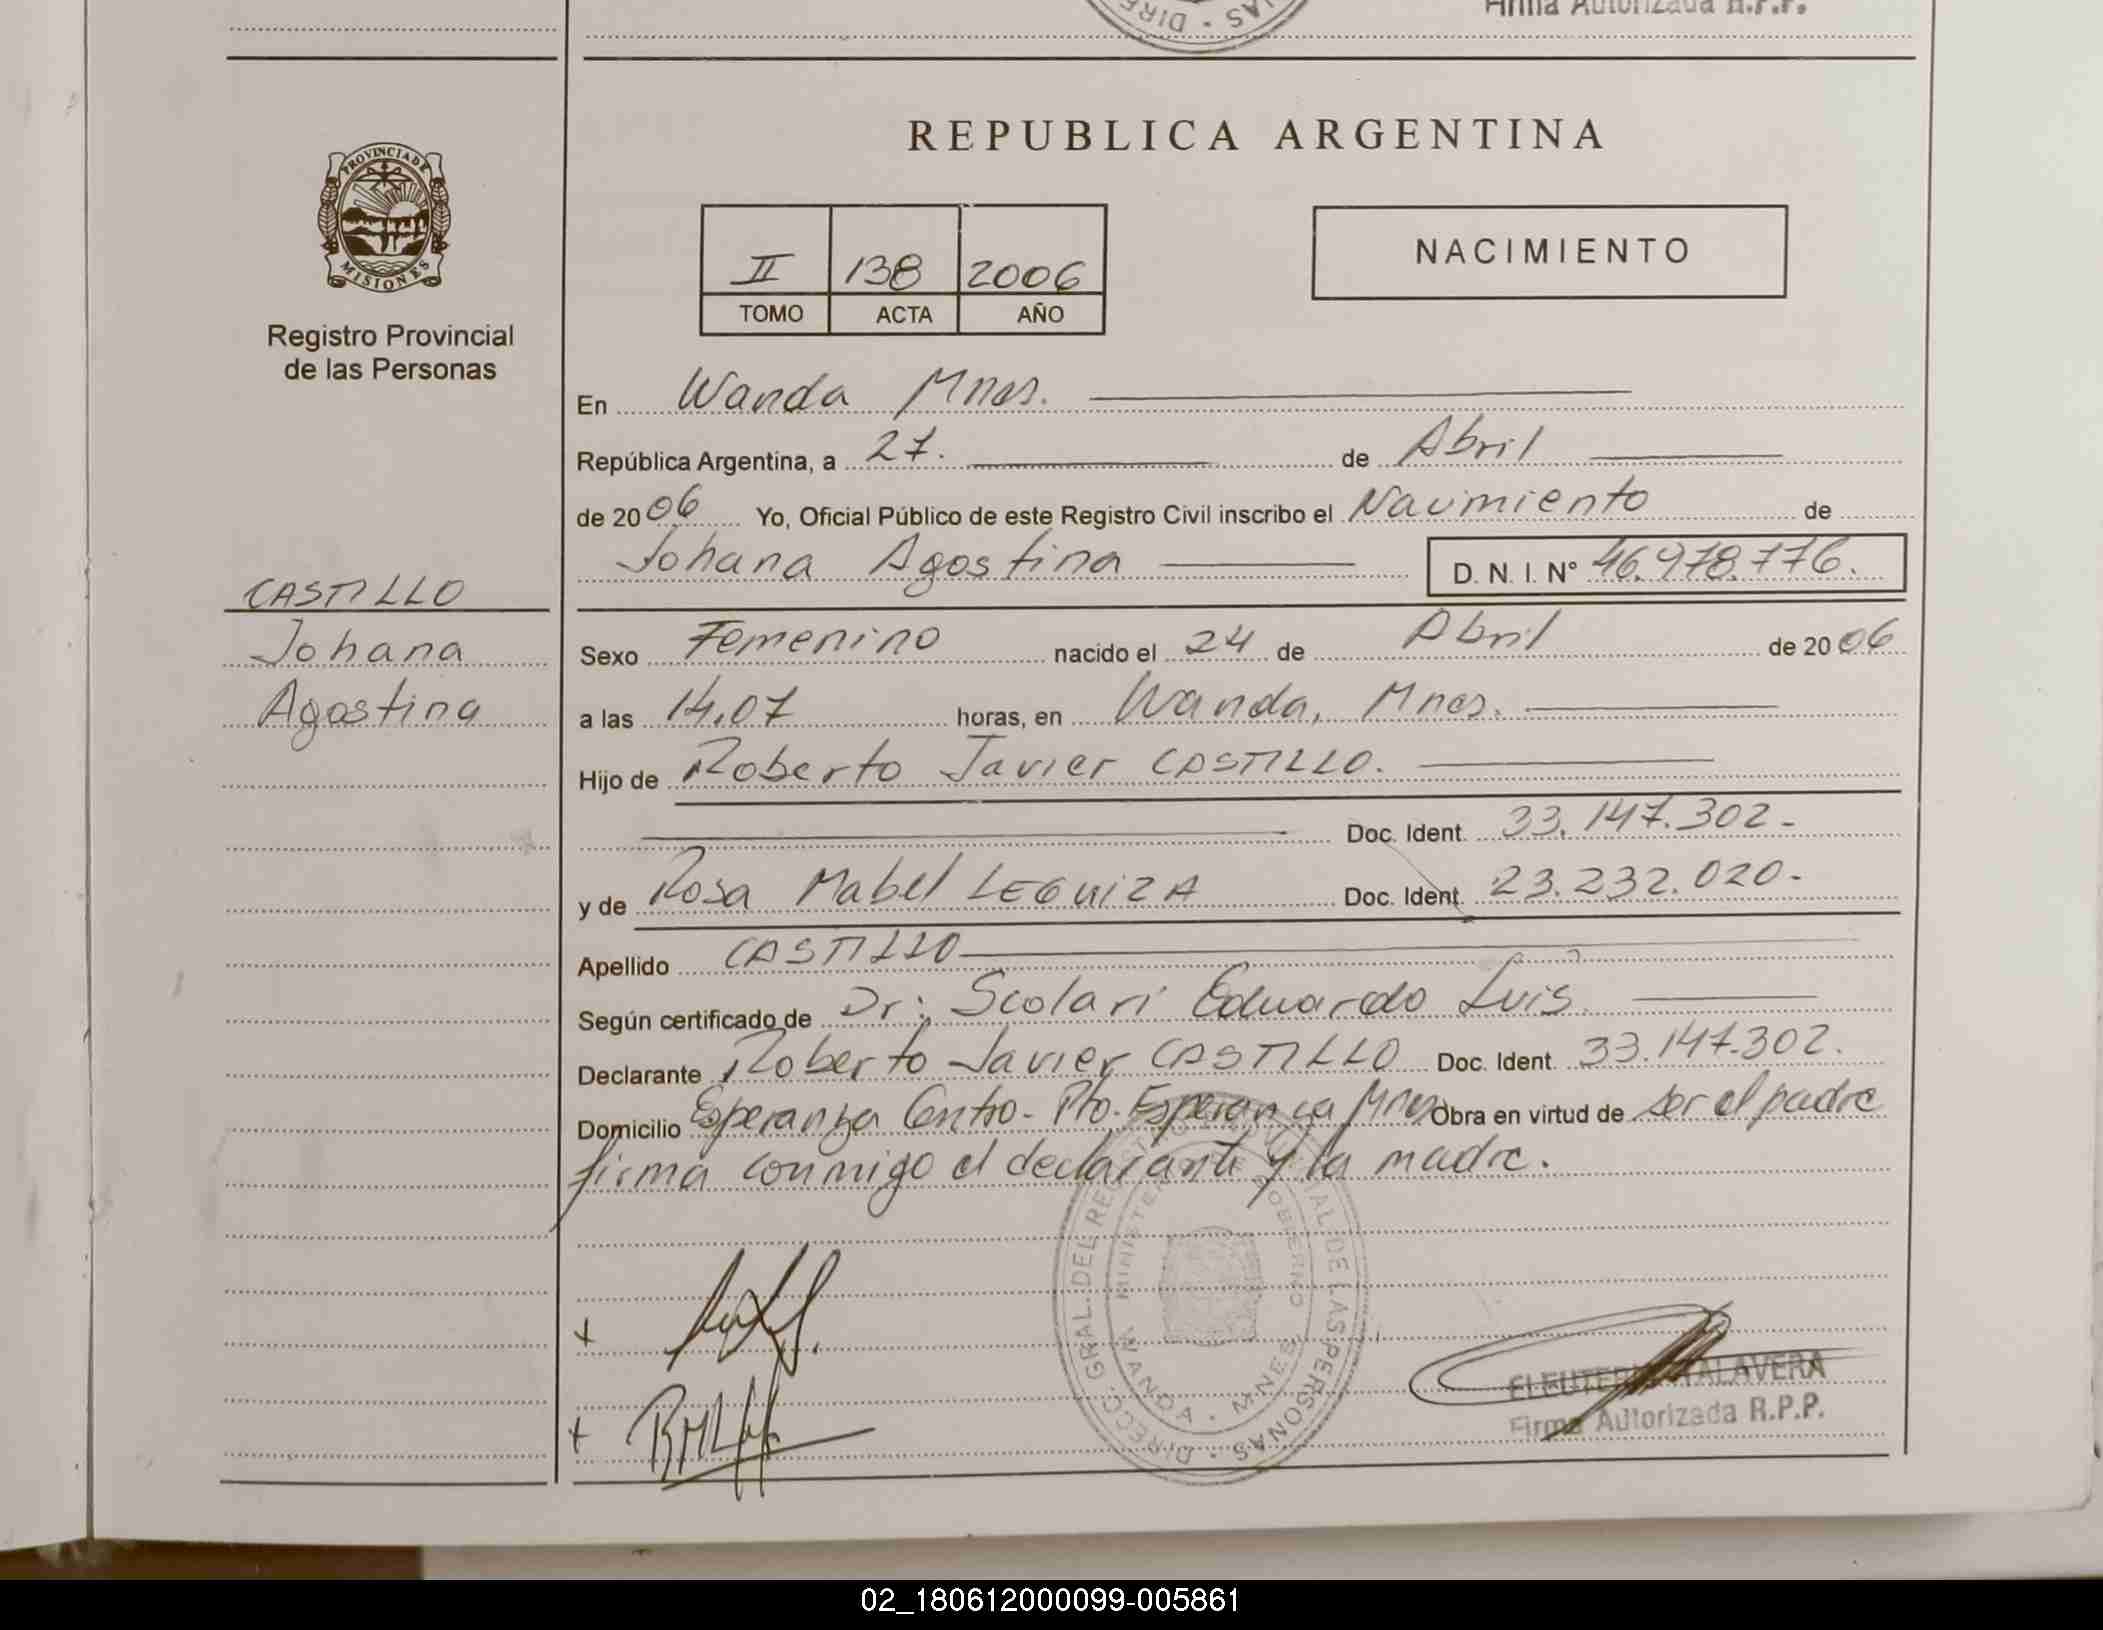 Firma Autorizada R.P.P.
PROVINCIA DE
MISIONES
Registro Provincial
de las Personas
REPUBLICA ARGENTINA
II 138 2006
TOMO ACTA AÑO
NACIMIENTO
En Wanda Mnes.
República Argentina, a 27. de Abril
de 2006 Yo, Oficial Público de este Registro Civil inscribo el Nacimiento de
Johana Agostina D. N. I. N° 46.978.776.
CASTILLO
Johana
Agostina
Sexo Femenino nacido el 24 de Abril de 2006
a las 14,07 horas, en Wanda, Mnes.
Hijo de Roberto Javier CASTILLO.
Doc. Ident. 33.147.302-
y de Rosa Mabel LEGUIZA Doc. Ident. 23.232.020-
Apellido CASTILLO
Según certificado de Dr: Scolari Eduardo Luis
Declarante Roberto Javier CASTILLO Doc. Ident. 33.147.302.
Domicilio Esperanza Centro - Pto. Esperanza Mnes Obra en virtud de ser el padre
firma conmigo el declarante y la madre.
DIRECC. GRAL. DEL REGISTRO PROVINCIAL DE LAS PERSONAS
MINISTERIO DE GOBIERNO
WANDA - MNES
ELEUTERIO TALAVERA
Firma Autorizada R.P.P.
02_180612000099-005861